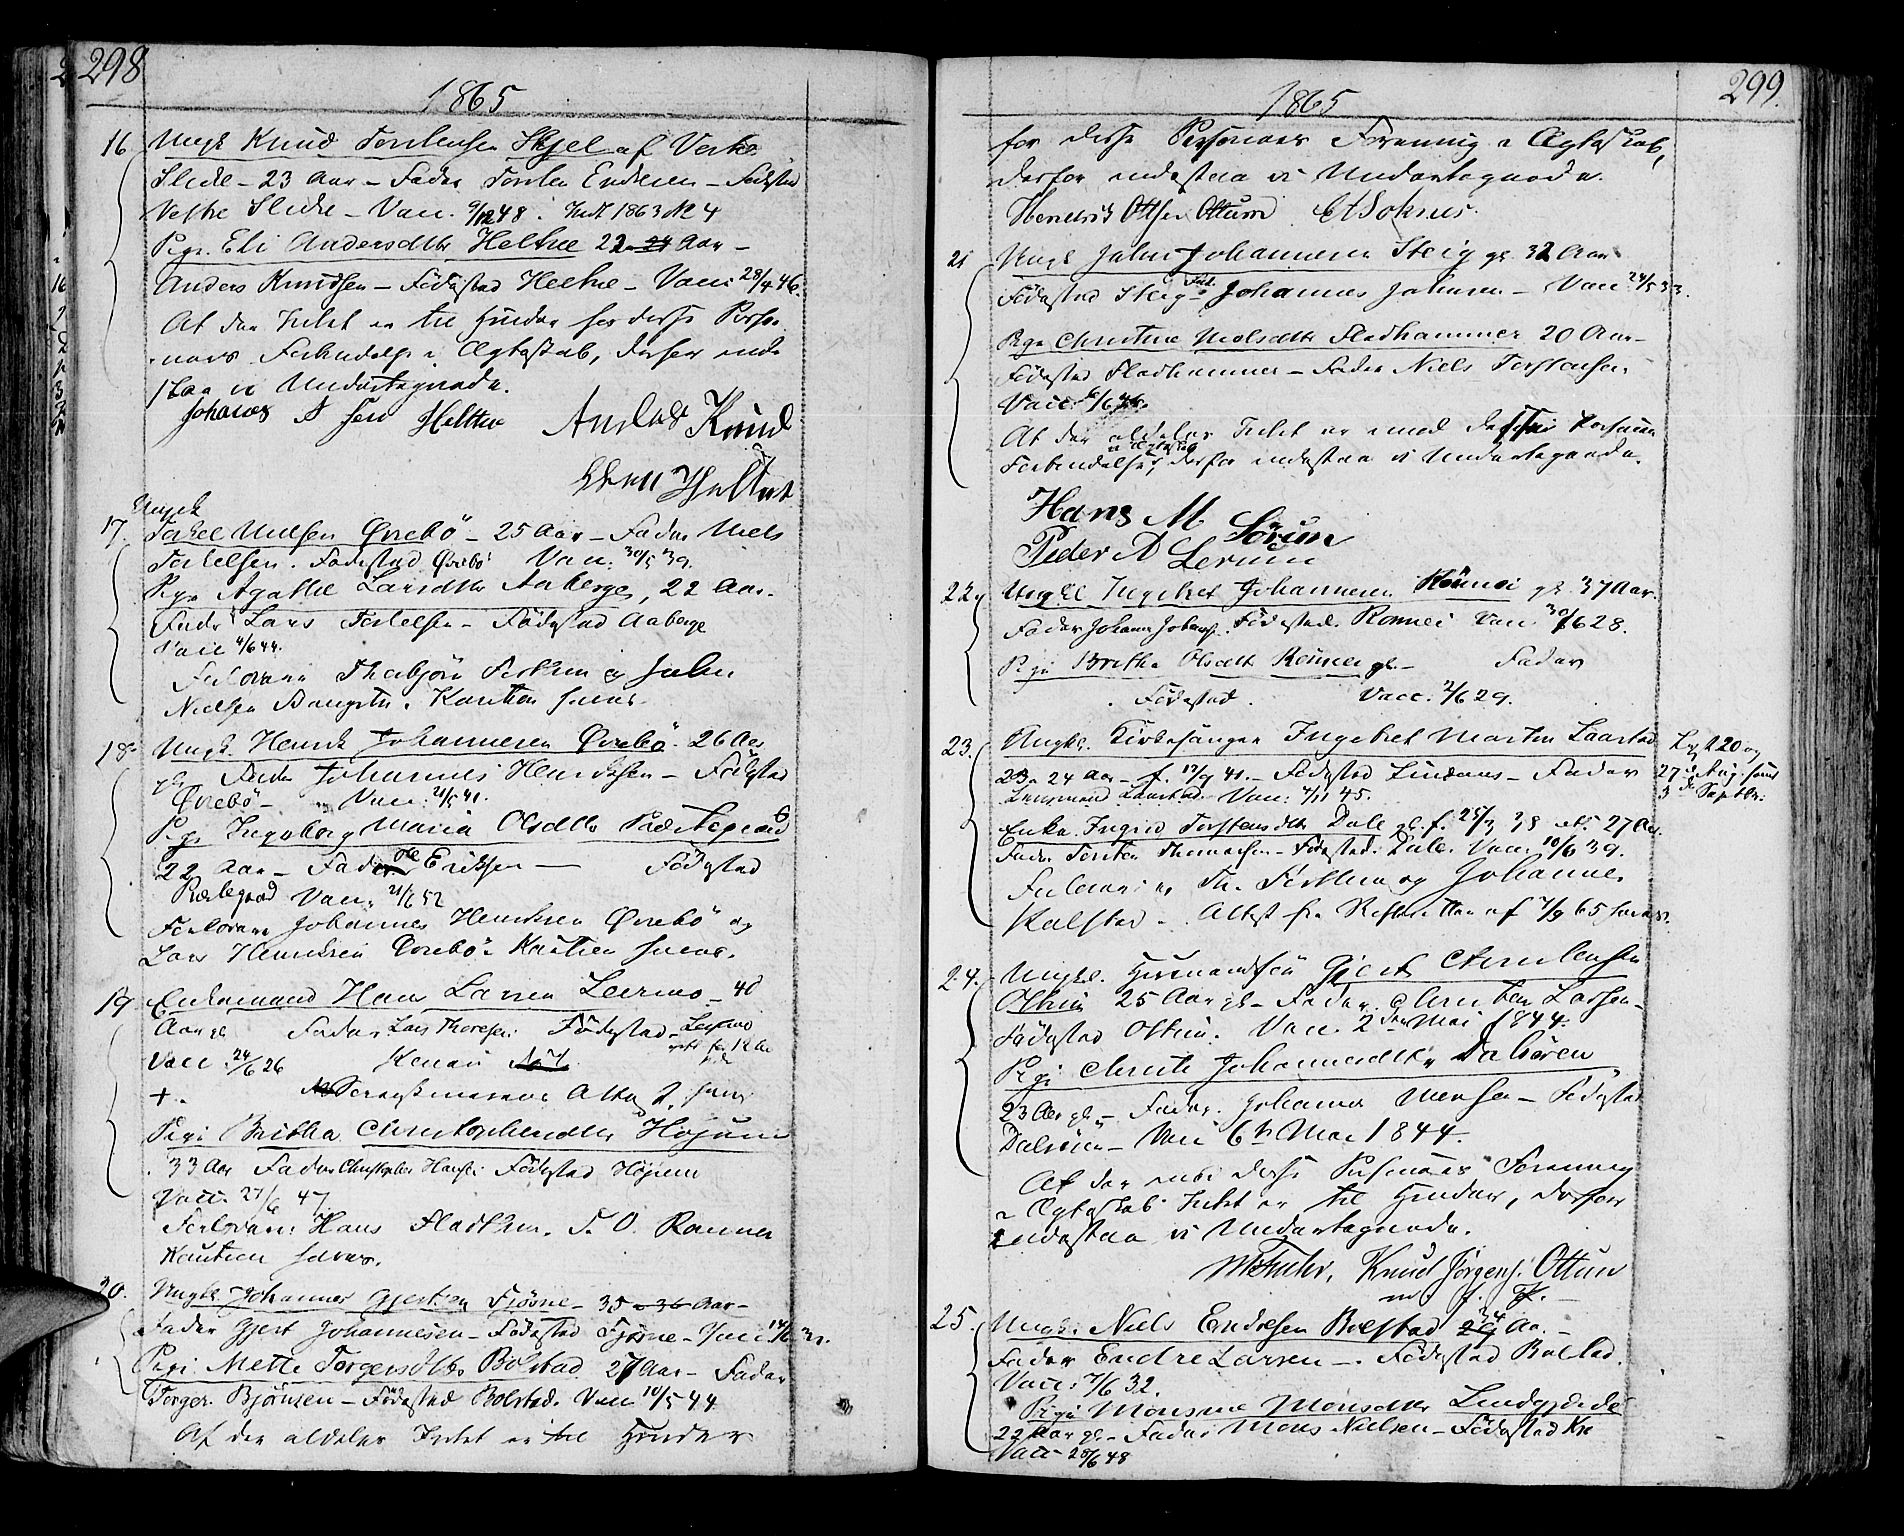 298
1865
16 Ungk Knud Torstensen Skjel af Vestre
Slidre - 23 Aar - Fader Torsten Endresen - Fødested
Vestre Slidre - Vacc. 9/12 48. Indf 1863 No 4
Pige Eli Andersdtr Heltne 22 Aar -
Anders Knudsen - Fødested Heltne - Vacc 28/4 46.
At der Intet er til Hinder for disse Perso-
ners Forbindelse i Ægteskab, derfor inde
staa vi Undertegnede.
Johanes A Heltne Anders Knud
sen Heltne
17. Ungk
Torkel Nielsen Øvrebö - 25 Aar - Fader Niels
Torkelsen. Fødested Øvrebö Vacc: 30/5 39.
Pige Agathe Larsdtr Aaberge, 22 Aar.
Fader Lars Torkelsen - Födested Aaberge
Vacc 4/6 44.
Forlovere Thorbjörn og John
Nielsen Kaution haves.
18. Ungk. Henrik Johannesen Øvrebö 26 Aar
gl. Fader Johannes Henriksen - Födested
Øvrebö - Vacc: 21/5 41.
Pige Ingeborg Maria Olsdtr
22 Aar - Fader Ole Eriksen - Fødested
Vacc. 21/6 52
Forlovere Johannes Henriksen Øvrebö og
Lars Henriksen Øvrebö. Kaution haves.
19 Enkemand Hans Larsen Lermo - 40
Aar gl Fader Lars Thoresen. Födested Lermo
Vacc. 24/6 26
+. Attest haves
Pige Britha Christophersdtr Højum
33 Aar Fader Christopher Hansen Födested Höjum
Vacc. 27/6 47.
Forlovere: Hans T. O. Ronnei
Kaution haves.
20. Ungk. Johannes Gjertsen Fjösne - 35 Aar -
Fader Gjert Johannesen - Fødested Fjørne - Vacc
Pige: Mette Torgersdtr Bolstad 27 Aar - Fader
Torger Bjørnsen - Fødested Bolstad. Vacc 10/5 44
At der aldeles Intet er til Hinder
299.
1865
for disse Personers Forening i Ægteskab,
derfor indestaa vi Undertegnede.
Henrik Ottsen Ottum
21 Ungk John Johannesen Steig gl. 32 Aar
Fødested Steig - Fad. Johannes Johnsen - Vacc. 24/5 33.
Pige Christine Nielsdtr Fladhammer 20 Aar -
Fødested Fladhammer - Fader Niels Torstensen.
Vacc.
At der aldeles Intet er imod Personers
Forbindelse i Ægteskab, derfor indestaa vi Undertegnede.
Hans M. Sörum
Peder A Lerum
22. Ungkl Ingebret Johannesen Rönnei gl. 37 Aar.
Fader Johans Johans. Födested Ronnei Vacc. 30/6 28.
Pige Britha Olsdtr Rönnei gl - Fader
Födested. Vacc. 2/6 29.
23. Ungkl. Kirkesanger Ingebret Morten Laastad
24 Aar - f. 17/9 41. - Fødested Lindaas - Fader
Lensmand Laastad. Vacc: 7/11 45.
Lyst 20 og
27 Aug. samt
3 Septbr.
Enke Ingrid Torstensdtr Dale gl. f. 25/3 38 27 Aar.
Fader Torsten Thomassen - Fødested: Dale. Vacc. 10/6 39.
Forlovere Th. og Johannes
Kalstad - Attest fra Skifteretten af 7/9 65 haves.
24. Ungkl. Husmandssön Gjert Christensen
Ottum 25 Aar gl - Fader Christen Larsen -
Fødested Ottum. Vacc. 2den Mai 1844.
Pige Christi Johannesdtr Dalsören
23 Aar gl - Fader: Johannes Monsen - Fødested
Dalsören - Vacc 6te Mai 1844.
At der mod disse Personers Forening
i Ægteskab Intet er til Hinder, derfor
indestaa vi Undertegnede.
Knud Jörgens. Ottum
25. Ungk: Niels Endresen Bolstad 34 Aar -
Fader Endre Larsen - Fødested Bolstad.
Vacc: 7/6 32.
Pige Monsine Monsdtr
22 Aar gl - Fader Mons Nielsen - Fødested
Vacc 28/6 48